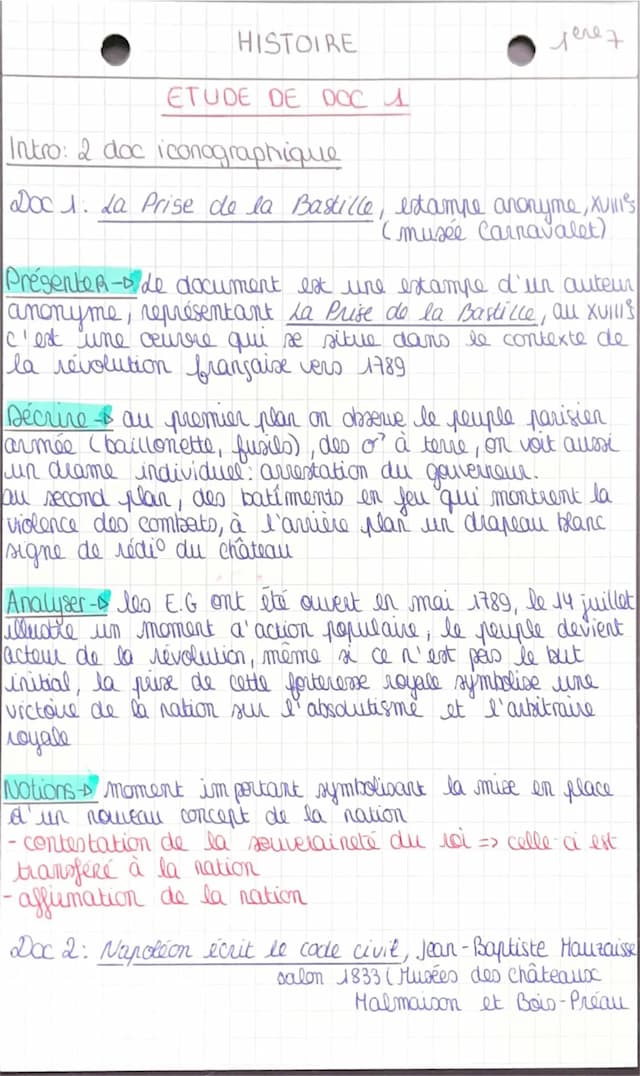 HISTOIRE
1ere7
ETUDE DE DOC 1
Intro: 2 doc iconographique
Doc 1: La Prise de la Bastille, estampe anonyme, XVIIIes
(musée Carnavalet)
Présenter → Le document est une estampe d'un auteur
anonyme, représentant La Prise de la Bastille, au XVIIIs
c'est une œuvre qui se situe dans le contexte de
la révolution française vers 1789
Décrire → au premier plan on observe le peuple parisien
armée (baillonette, fusils), des à terre, on voit aussi
un drame individuel: arrestation du gouverneur.
au second plan, des batîments en feu qui montrent la
violence des combats, à l'arrière plan un drapeau blanc
signe de rédi° du château
Analyser → les E.G ont été ouvert en mai 1789, le 14 juillet
illustre un moment d'action populaire, le peuple devient
acteur de la révolution, même si ce n'est pas le but
initial, la prise de cette forteresse royale symbolise une
victoire de la nation sur l'absolutisme et l'arbitraire
royale
Notions → moment important symbolisant la mise en place
d'un nouveau concept de la nation
- contestation de la souveraineté du roi => celle-ci est
transféré à la nation
- affirmation de la nation
Doc 2: Napoléon écrit le code civil, Jean-Baptiste Mauzaisse
salon 1833 (Musées des châteaux
Malmaison et Bois-Préau